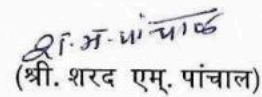 श. म. पांचाळ
(श्री. शरद एम्. पांचाल)